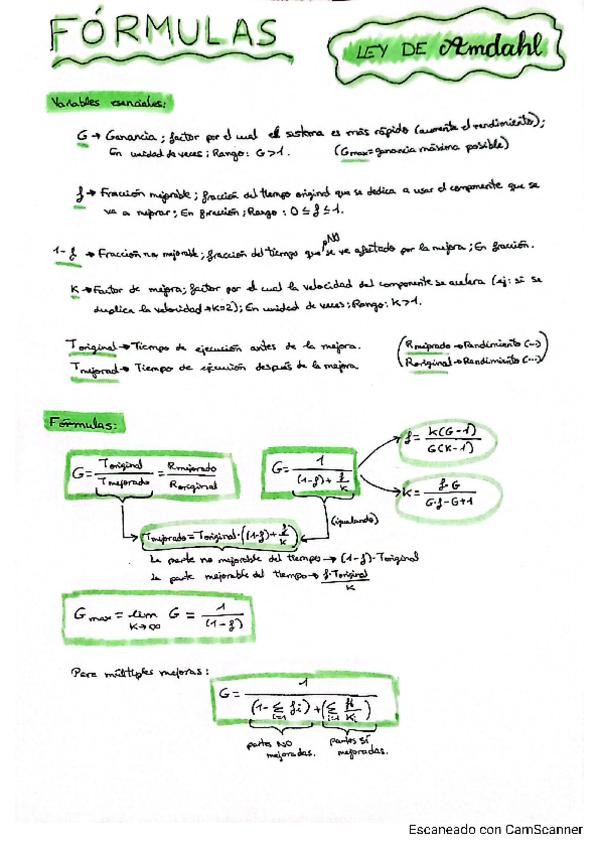 FÓRMULAS
LEY DE Amdahl
Variables esenciales:
G → Ganancia; factor por el cual el sistema es más rápido (aumente el rendimiento);
En unidad de veces; Rango: G>1. (Gmax = ganancia máxima posible)
f → Fracción mejorable; fracción del tiempo original que se dedica a usar el componente que se
va a mejorar; En fracción; Rango: 0 ≤ f ≤ 1.
1-f → Fracción no mejorable; fracción del tiempo que NO se ve afectado por la mejora; En fracción.
K → Factor de mejora; factor por el cual la velocidad del componente se acelera (ej: si se
duplica la velocidad → K=2); En unidad de veces; Rango: K>1.
Toriginal → Tiempo de ejecución antes de la mejora. (Rmejorado → Rendimiento (...)
Tmejorad → Tiempo de ejecución después de la mejora (Roriginal → Rendimiento (...))
Fórmulas:
G = Toriginal / Tmejorado = Rmejorado / Roriginal
G = 1 / ((1-f) + f/K)
f = K(G-1) / G(K-1)
K = f·G / (G·f-G+1)
(igualando)
Tmejorado = Toriginal · ((1-f) + f/K)
La parte no mejorable del tiempo → (1-f) · Toriginal
La parte mejorable del tiempo → f·Toriginal / K
Gmax = lim K→∞ G = 1 / (1-f)
Para múltiples mejoras:
G = 1 / ((1 - Σ i=1 fi) + (Σ i=1 fi/Ki))
partes NO mejoradas.
partes SÍ mejoradas.
Escaneado con CamScanner